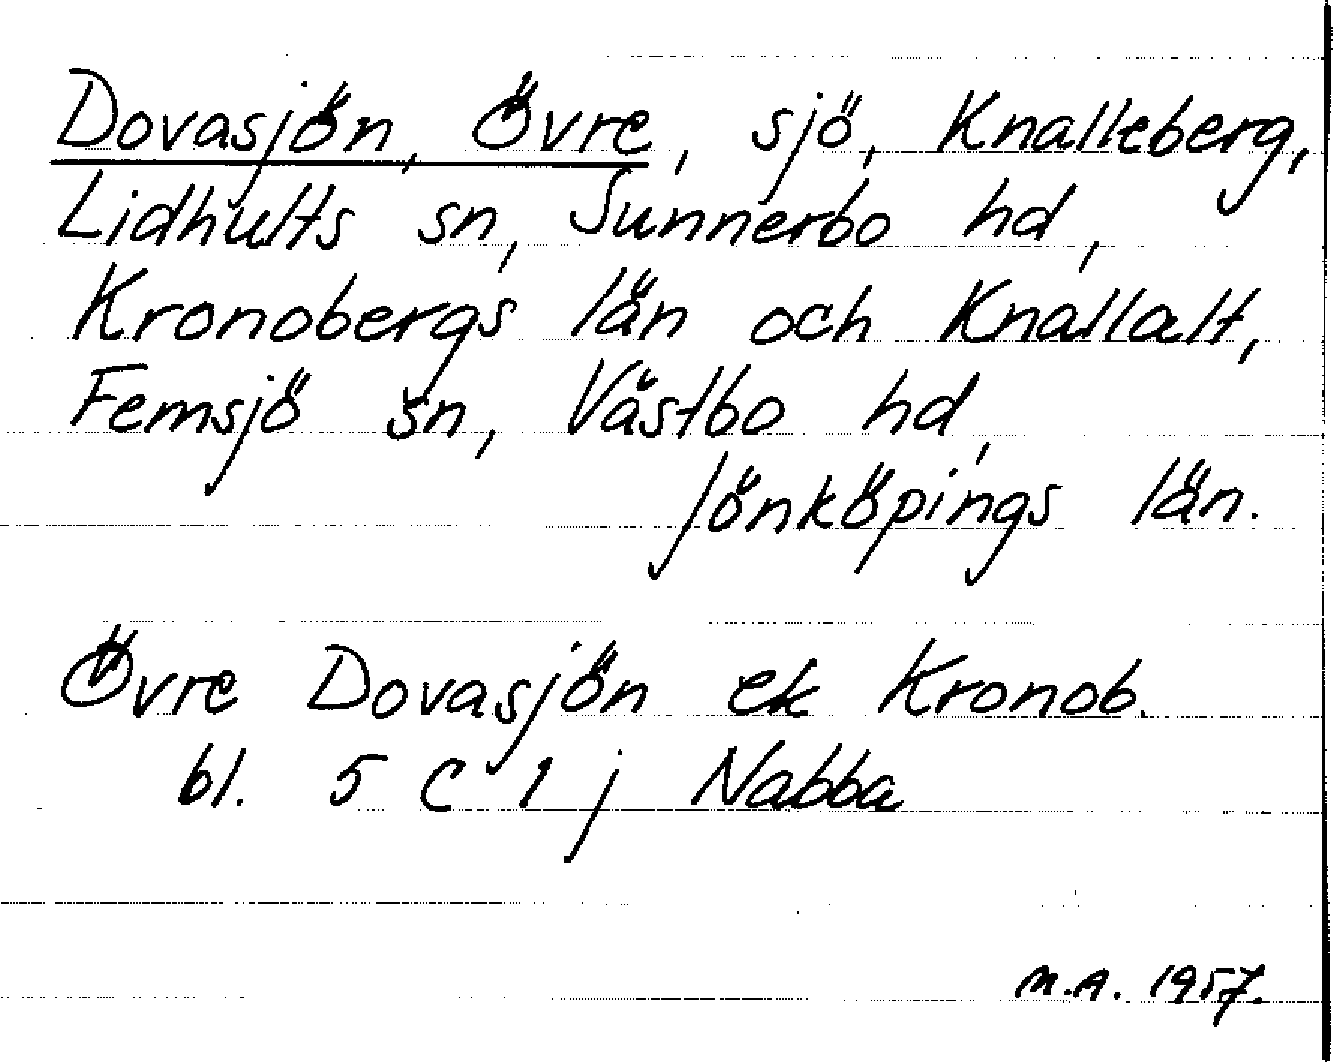 Dovasjön, Övre, sjö, Knalleberg,
Lidhults sn, Sunnerbo hd,
Kronobergs län och Knallalt,
Femsjö sn, Västbo hd,
Jönköpings län.
Övre Dovasjön ek Kronob.
bl. 5 C 1 j Nabba
M.A. 1957.